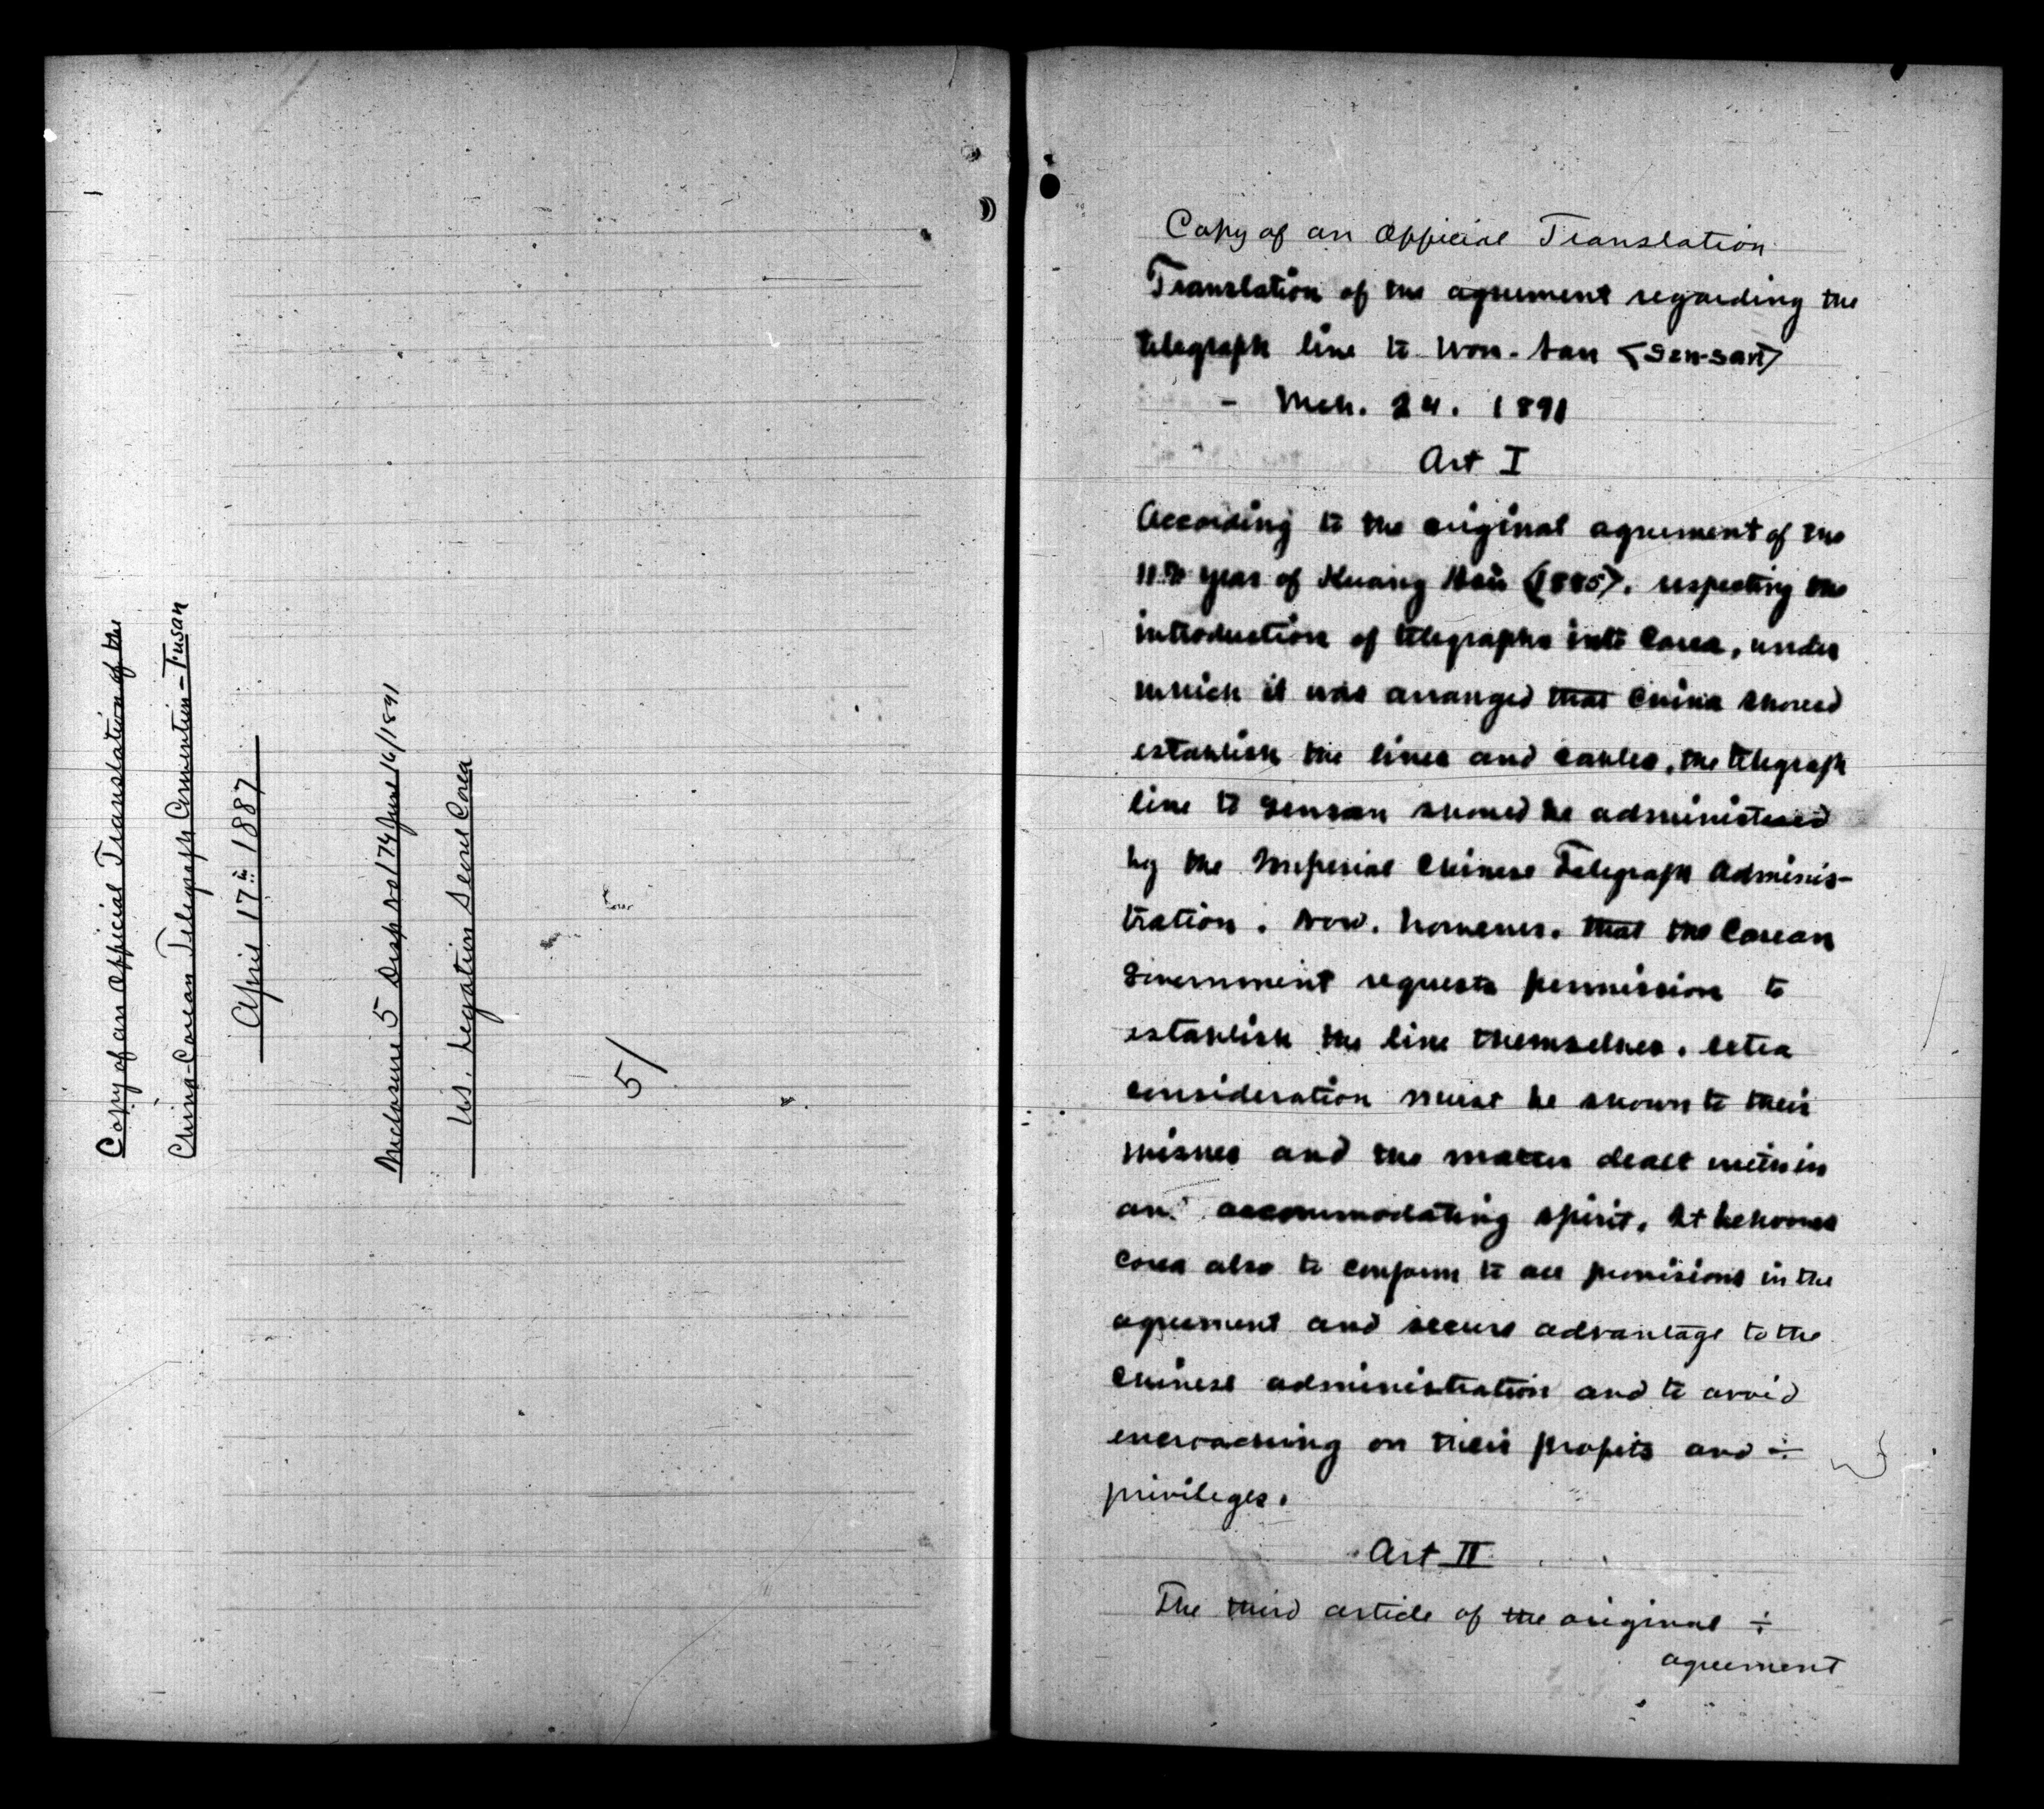 Copy of an Official Translation of the
China-Corean Telegraph Convention - Fusan
April 17th 1887
Inclosure 5 Disp no 174 June 16/1891
U.S. Legation Seoul Corea
5/
Copy of an Official Translation
Translation of the agreement regarding the
telegraph line to Won-san <Gen-san>
- Mch. 24. 1891
Art I
According to the original agreement of the
11th year of Kuang Hsü <1885>. respecting the
introduction of telegraphs into Corea, under
which it was arranged that China should
establish the lines and cables, the telegraph
line to Gensan should be administered
by the Imperial Chinese Telegraph Adminis-
tration. Now. however. that the Corean
Government requests permission to
establish the line themselves. extra
consideration must be shown to their
wishes and the matter dealt with in
an accommodating spirit. It behooves
Corea also to conform to all provisions in the
agreement and secure advantage to the
Chinese administration and to avoid
encroaching on their profits and ÷
privileges.
Art II
The third article of the original ÷
agreement